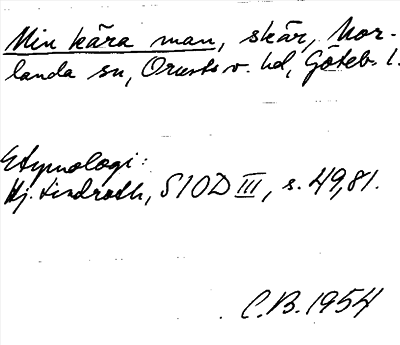 Min kära man, skär, Mor-
landa sn, Orusts v. hd, Göteb. l.
Etymologi:
Hj. Lindroth, SIOD III, s. 49, 81.
C.B. 1954